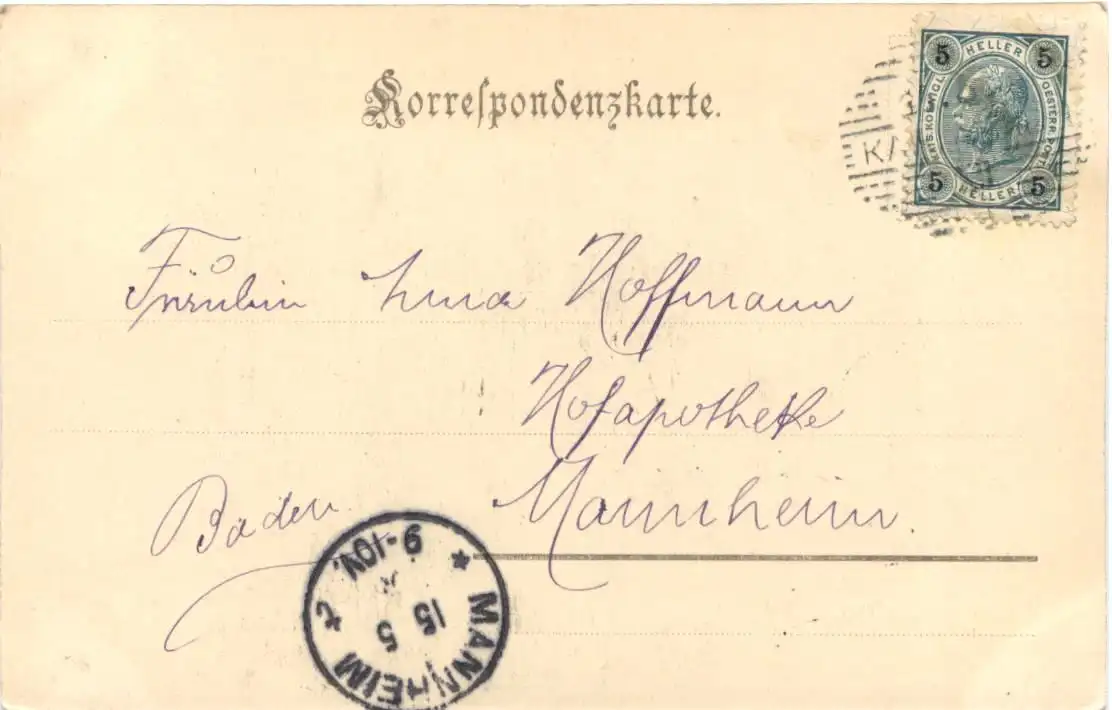 Korrespondenzkarte.
5 HELLER 5
KAIS. KOENIGL. OESTERR. POST.
5 HELLER 5
Fräulein Hoffmann
Hofapotheke
Baden Mannheim.
* MANNHEIM 2
15 5
9-10N.